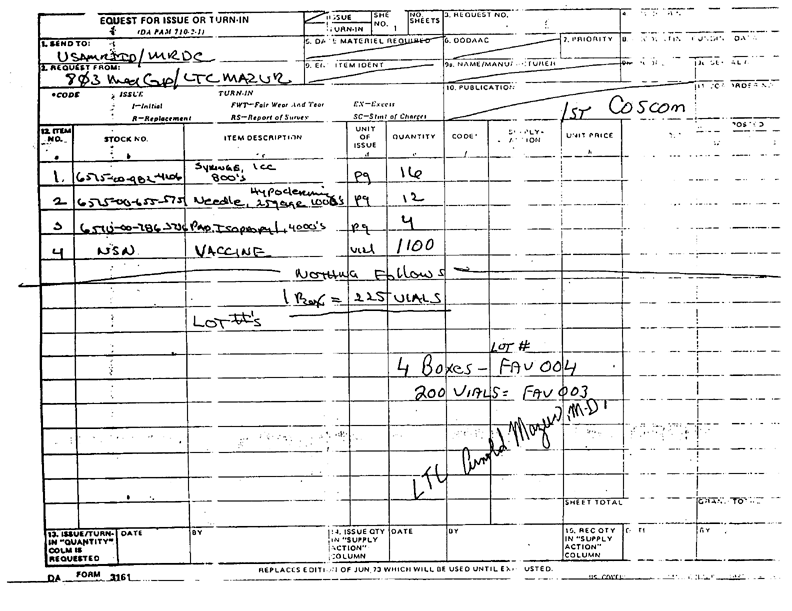 EQUEST FOR ISSUE OR TURN-IN
(DA PAM 710-2-1)
ISSUE
TURN-IN
SHE NO. 1
NO. SHEETS
3. REQUEST NO.
1. SEND TO:
USAMRIID/MRDC
5. DATE MATERIEL REQUIRED
6. DODAAC
7. PRIORITY
2. REQUEST FROM:
803 Med Gp/LTC MAZUR
9. END ITEM IDENT
9a. NAME/MANUFACTURER
*CODE
ISSUE
TURN-IN
10. PUBLICATION
I-Initial
FWT-Fair Wear And Tear
EX-Excess
R-Replacement
RS-Report of Survey
SC-Stmt of Charges
1ST COSCOM
12. ITEM NO.
STOCK NO.
ITEM DESCRIPTION
UNIT OF ISSUE
QUANTITY
CODE*
SUPPLY ACTION
UNIT PRICE
POSTED
1. 6515-00-982-4206 Syringe, 1cc 800's pg 16
2 6515-00-655-575 Needle, Hypodermic 25gage 1000's pg 12
3 Pad, Isopropyl, 4000's pg 4
4 NSN VACCINE vial 1100
NOTHING Follows
1 Box = 225 VIALS
LOT #'s
LOT #
4 Boxes - FAV 004
200 VIALS = FAV 003
LTC Arnold Mazur, M.D.
SHEET TOTAL
13. ISSUE/TURN-IN "QUANTITY" COLM IS REQUESTED
DATE
BY
14. ISSUE QTY IN "SUPPLY ACTION" COLUMN
DATE
BY
15. REC QTY IN "SUPPLY ACTION" COLUMN
BY
DA FORM 3161
REPLACES EDITION OF JUN 73 WHICH WILL BE USED UNTIL EXHAUSTED.